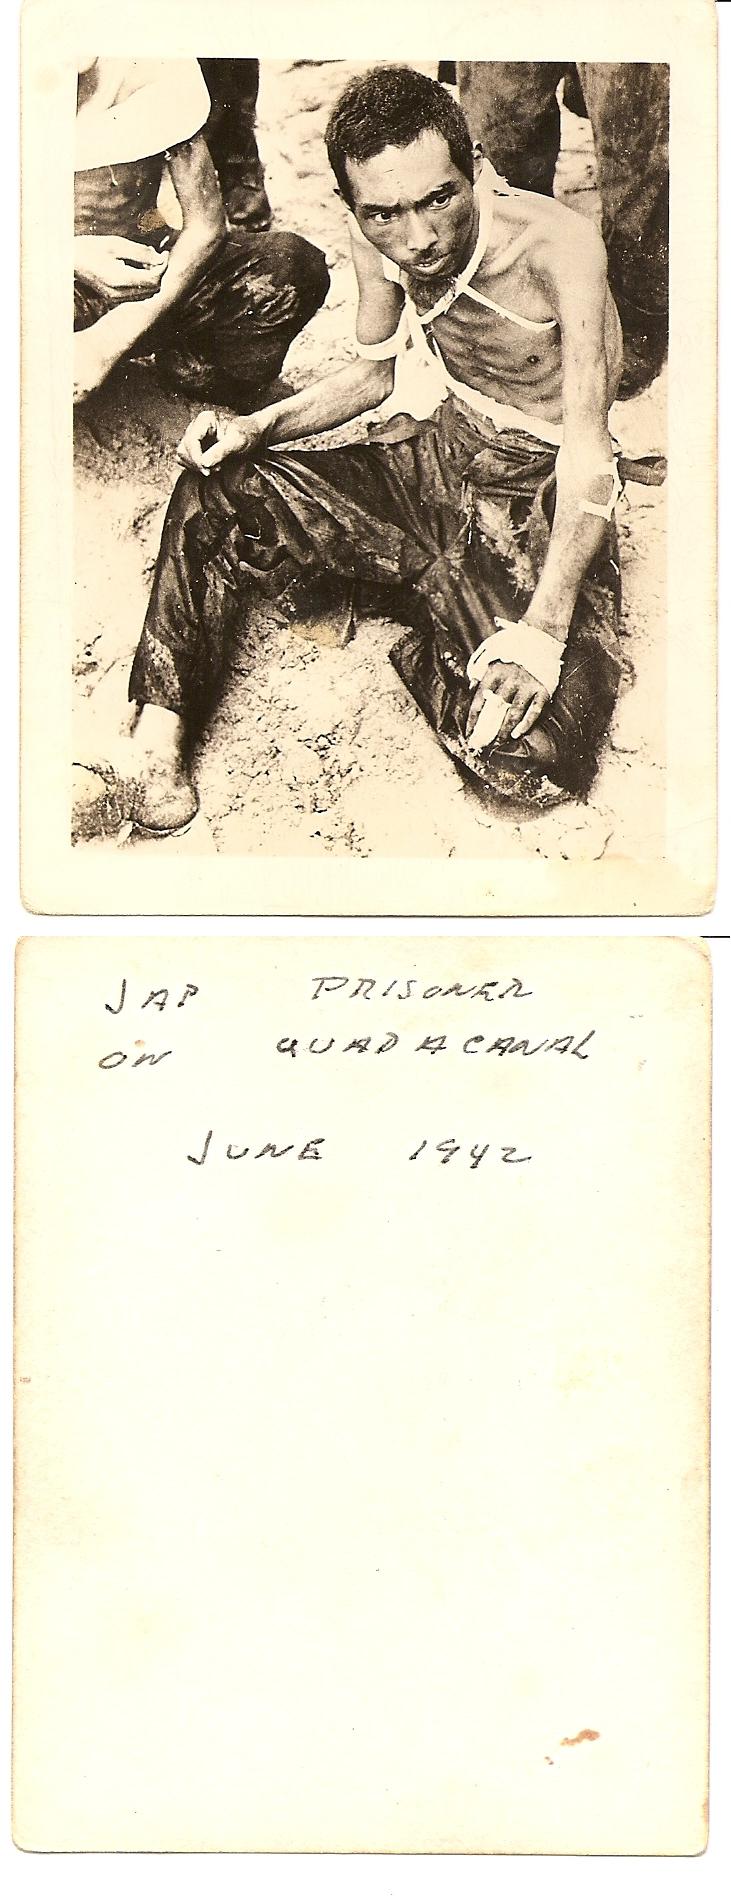 JAP PRISONER
ON GUADACANAL
JUNE 1942